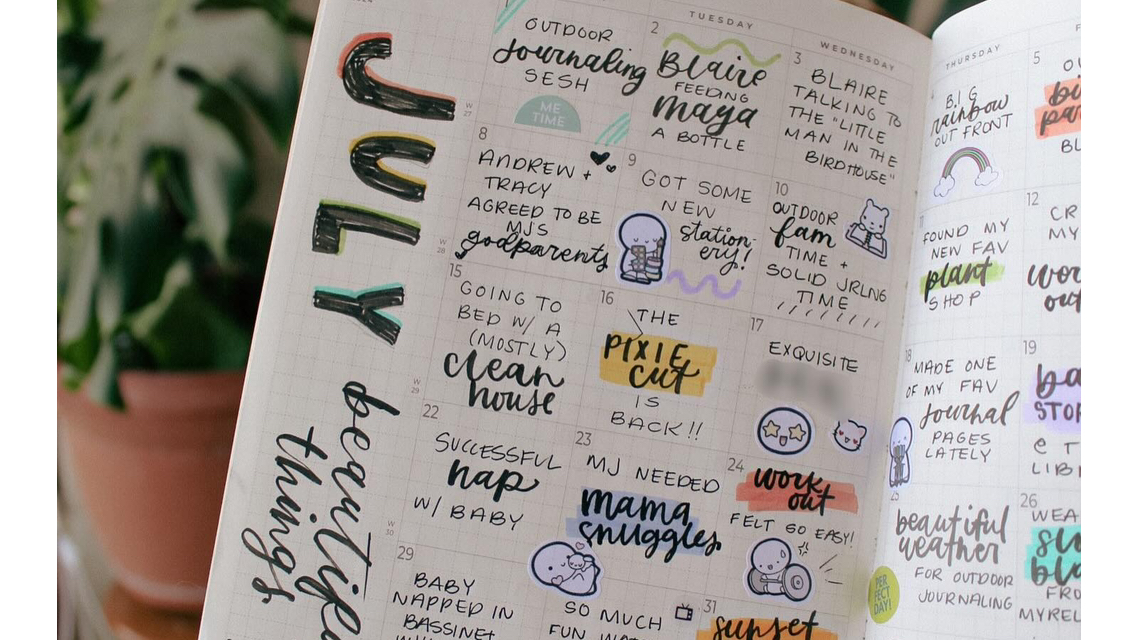 TUESDAY
WEDNESDAY
THURSDAY
JULY
beautiful
things
OUTDOOR
journaling
SESH
ME
TIME
2
Blaire
FEEDING
maya
A BOTTLE
3
BLAIRE
TALKING TO
THE "LITTLE
MAN IN THE
BIRDHOUSE"
BIG
rainbow
OUT FRONT
5
W
27
8
ANDREW +
TRACY
AGREED TO BE
MJS
godparents
9
GOT SOME
NEW
station-
ery!
10
OUTDOOR
fam
TIME +
SOLID JRLNG
TIME
11
FOUND MY
NEW FAV
plant
SHOP
12
MY
WOR
OUT
W
28
15
GOING TO
BED W/ A
(MOSTLY)
clean
house
16
THE
PIXIE
cut
IS
BACK!!
17
EXQUISITE
18
MADE ONE
OF MY FAV
journal
PAGES
LATELY
19
STOR
@ T
LIB
W
29
22
SUCCESSFUL
nap
W/ BABY
23
MJ NEEDED
mama
snuggles
24
work
out
FELT SO EASY!
25
beautiful
weather
FOR OUTDOOR
JOURNALING
PER
FECT
DAY!
26
WEA
FRO
MYREL
W
30
29
BABY
NAPPED IN
BASSINET
SO MUCH
31
sunset